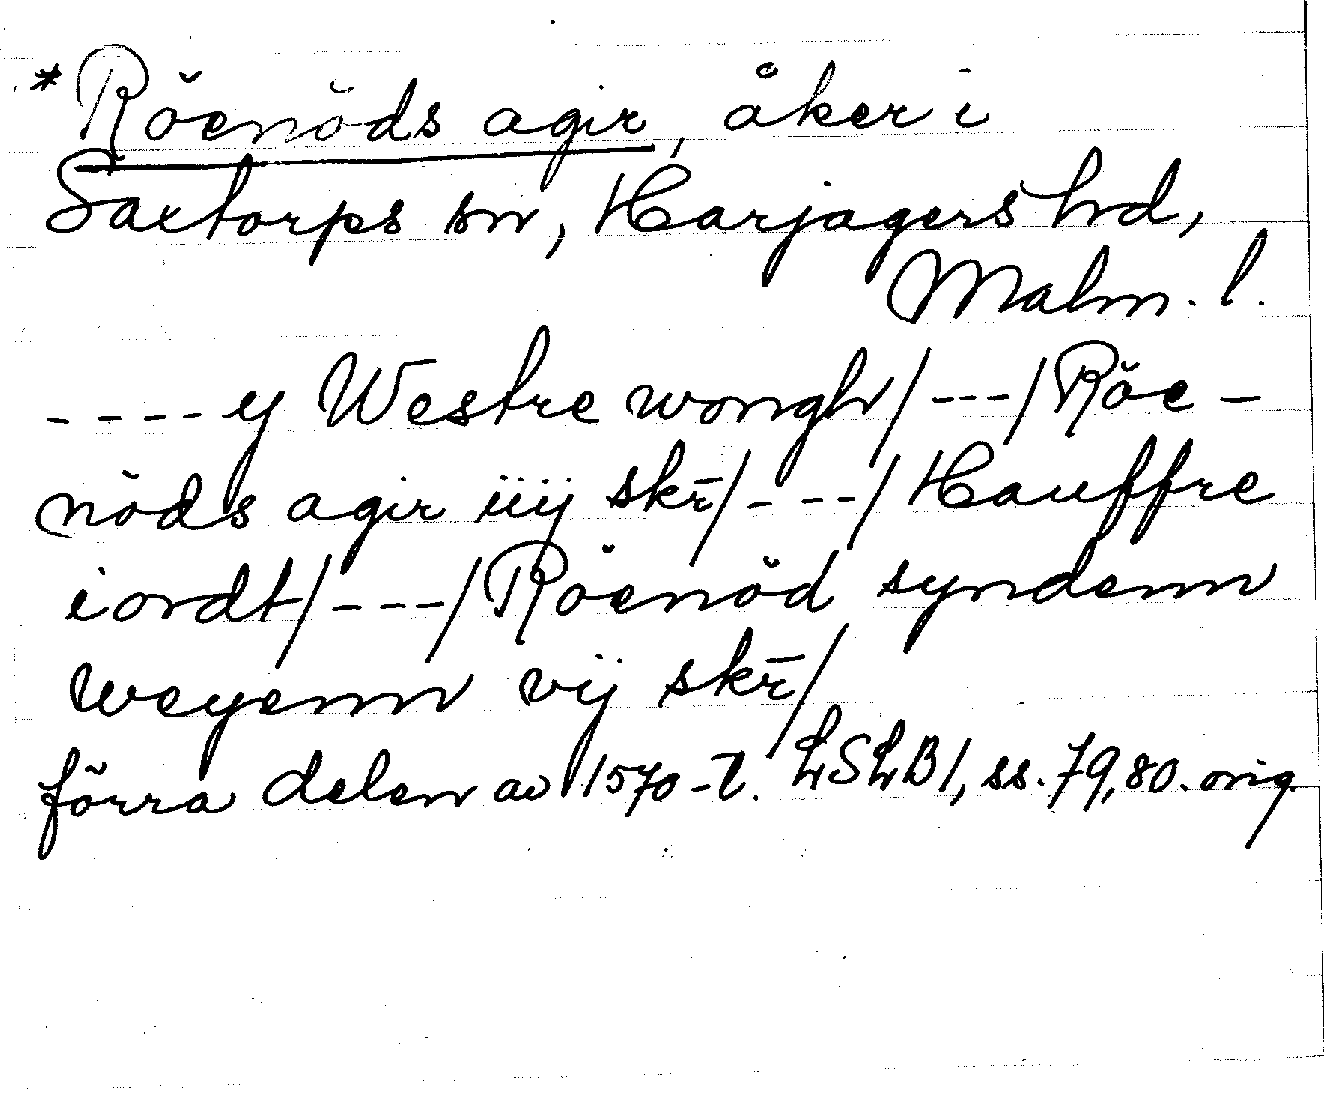 *Röenöds agir, åker i
Saxtorps sn, Harjagers hd,
Malm. l.
---- y Westre wongh/---/Röe-
nöds agir iiij skr̄/---/Hauffre
iordt/---/Röenöd syndenn
weyenn vij skr̄/
förra delen av 1570-t. LSLB1, ss. 79, 80. orig